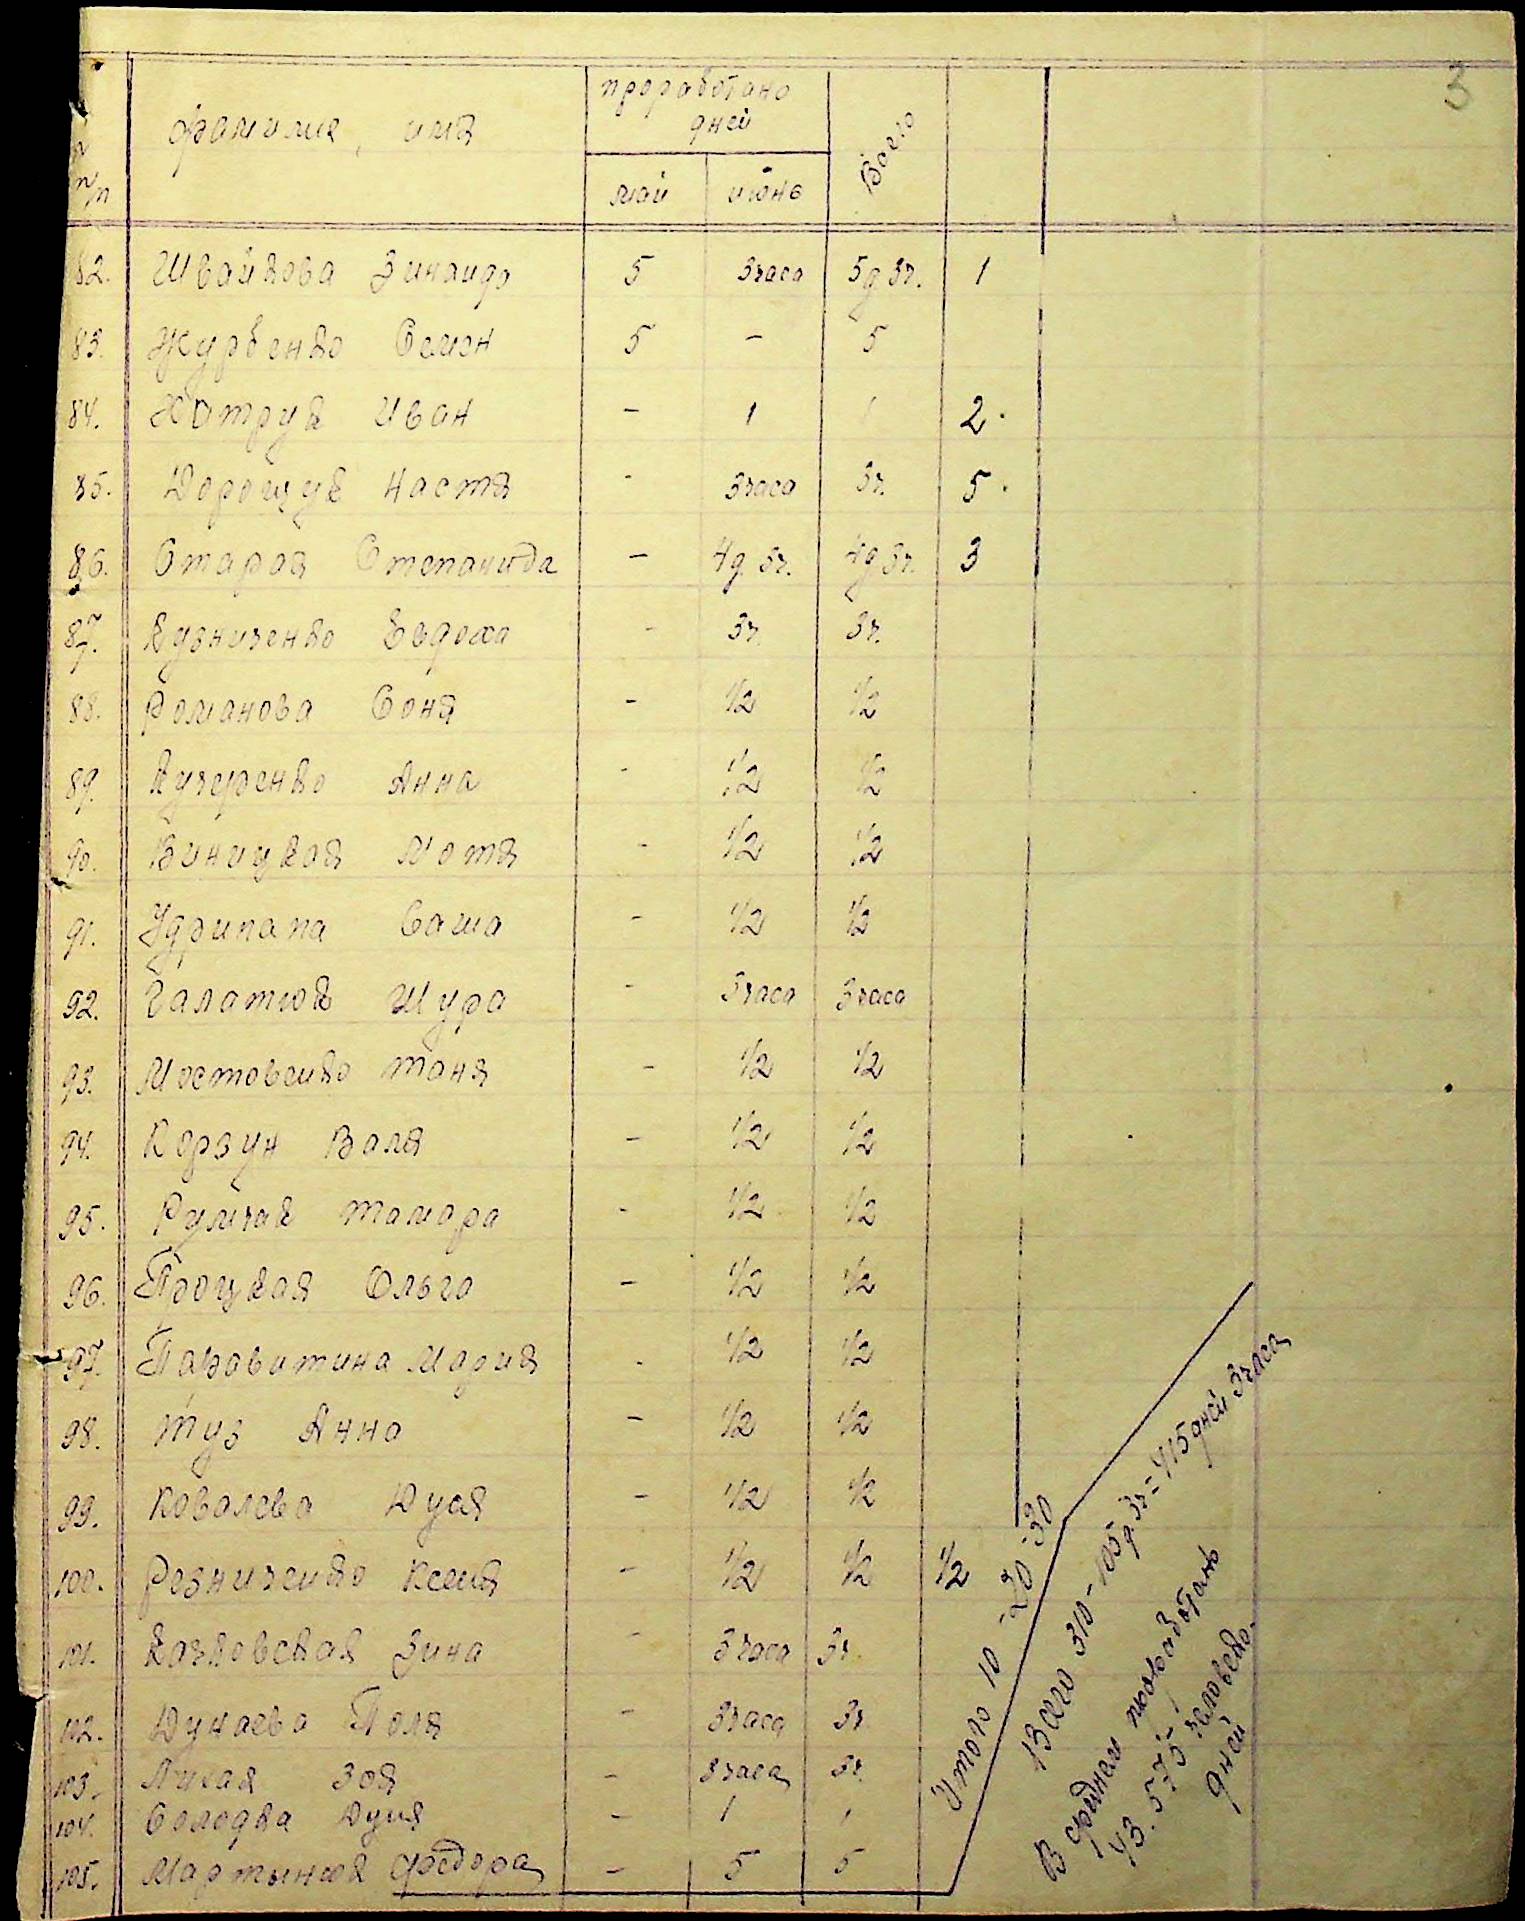 3
п/п
фамилия, имя
проработано дней
май июнь
Всего
82. Швайкова Зинаида 5 3 часа 5 д 3 ч. 1
83. Журбенко Семен 5 – 5
84. Хатрук Иван – 1 1 2.
85. Дорощук Настя - 3 часа 3 ч. 5.
86. Старая Степанида – 4 д. 3 ч. 4 д 3 ч. 3
87. Кузниченко Евдоха - 3 ч. 3 ч.
88. Романова Соня – 1/2 1/2
89. Кучеренко Анна - 1/2 1/2
90. Виницкая Мотя - 1/2 1/2
91. Удрипапа Саша – 1/2 1/2
92. Галатюк Шура - 3 часа 3 часа
93. Мостовенко Таня – 1/2 1/2
94. Корзун Валя – 1/2 1/2
95. Румчак Тамара - 1/2 1/2
96. Троцкая Ольга – 1/2 1/2
97. Мария - 1/2 1/2
98. Туз Анна – 1/2 1/2
99. Ковалева Дуся – 1/2 1/2
100. Резниченко Ксеня – 1/2 1/2 1/2
101. Качковская Зина – 3 часа 3 ч.
102. Дунаева Поля – 3 часа 3 ч.
103. Лихая Зоя – 3 часа 3 ч.
104. Солодка Дуня – 1 1
105. Мартынюк Федора – 5 5
Итого 10 - 20 - 30
Всего 310 - 105 д. 3 ч = 415 дней 3 часа
В среднем проработано
43.575 человеко.
дней